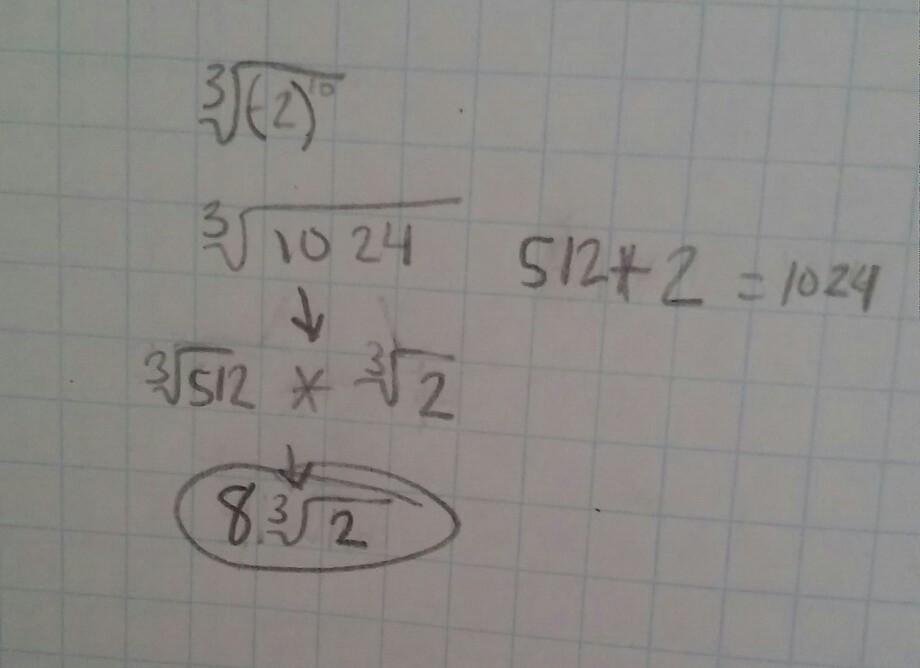 ∛(-2)¹⁰
∛1024 512 * 2 = 1024
↓
∛512 * ∛2
↓
8∛2